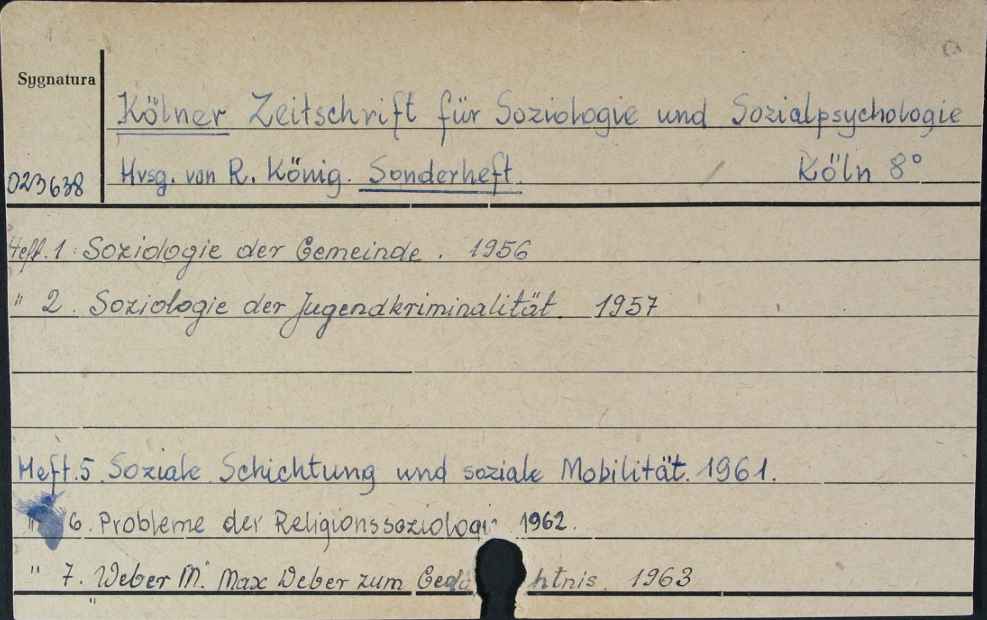 Sygnatura
Kölner Zeitschrift für Soziologie und Sozialpsychologie
023638 Hrsg. von R. König. Sonderheft. Köln 8°
Heft. 1. Soziologie der Gemeinde. 1956
" 2. Soziologie der Jugendkriminalität. 1957
Heft. 5. Soziale Schichtung und soziale Mobilität. 1961.
" 6. Probleme der Religionssoziologi 1962.
" 7. Weber M. Max Weber zum Gedä htnis. 1963
"